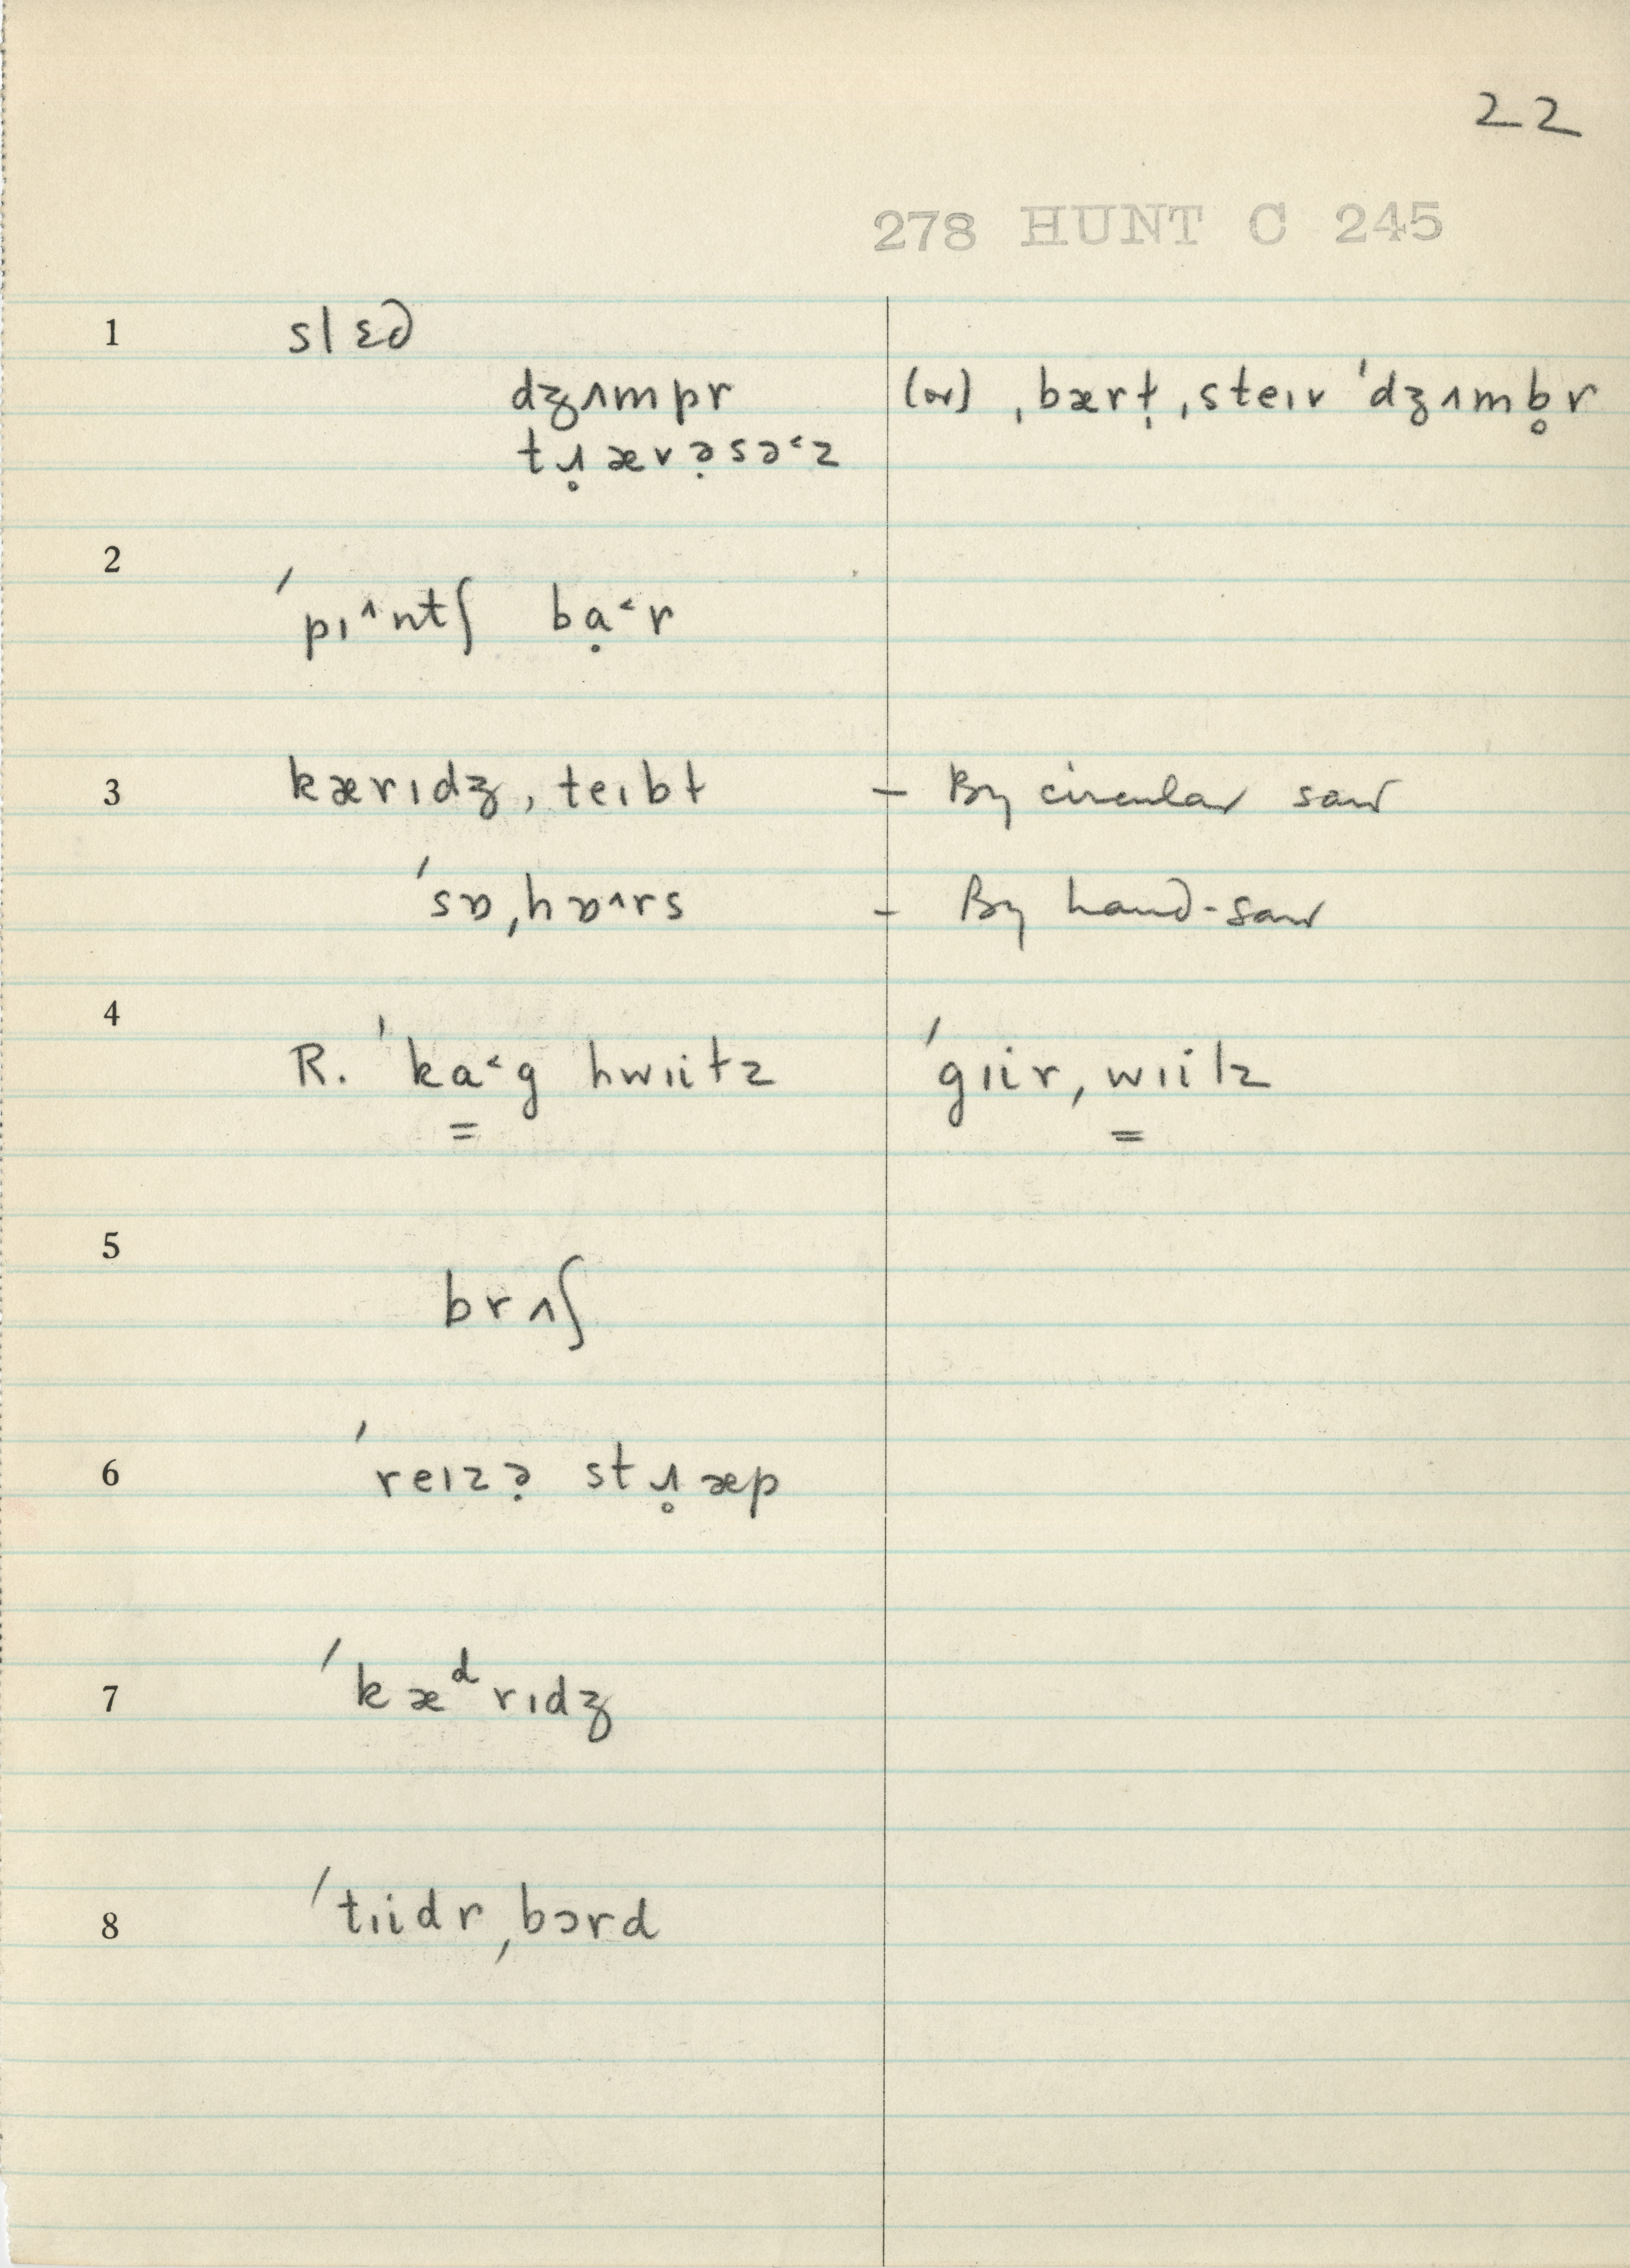 22
278 HUNT C 245
1 slɛd
dʒʌmpr (or) ˌbærɫ̣ ˌsteɪv ˈdʒʌmb̥r
tɹ̥ævə̣sə˂z
2 ˈpɪ^ntʃ bạ˂r
3 kærɪdʒ, teɪbɫ – By circular saw
ˈsɒˌhɒ^rs – By hand-saw
4 R. ˈka˂g hwɪiɫz ˈgɪirˌwɪilz
= =
5 brʌʃ
6 ˈreɪzə̣ stɹ̥æp
7 ˈkæᵈrɪdʒ
8 ˈtɪidrˌbɔrd